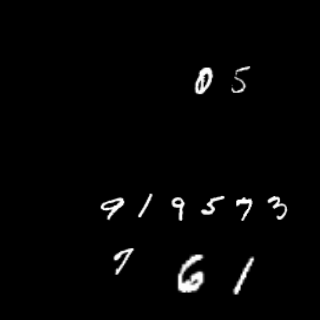 05
919573
7
61